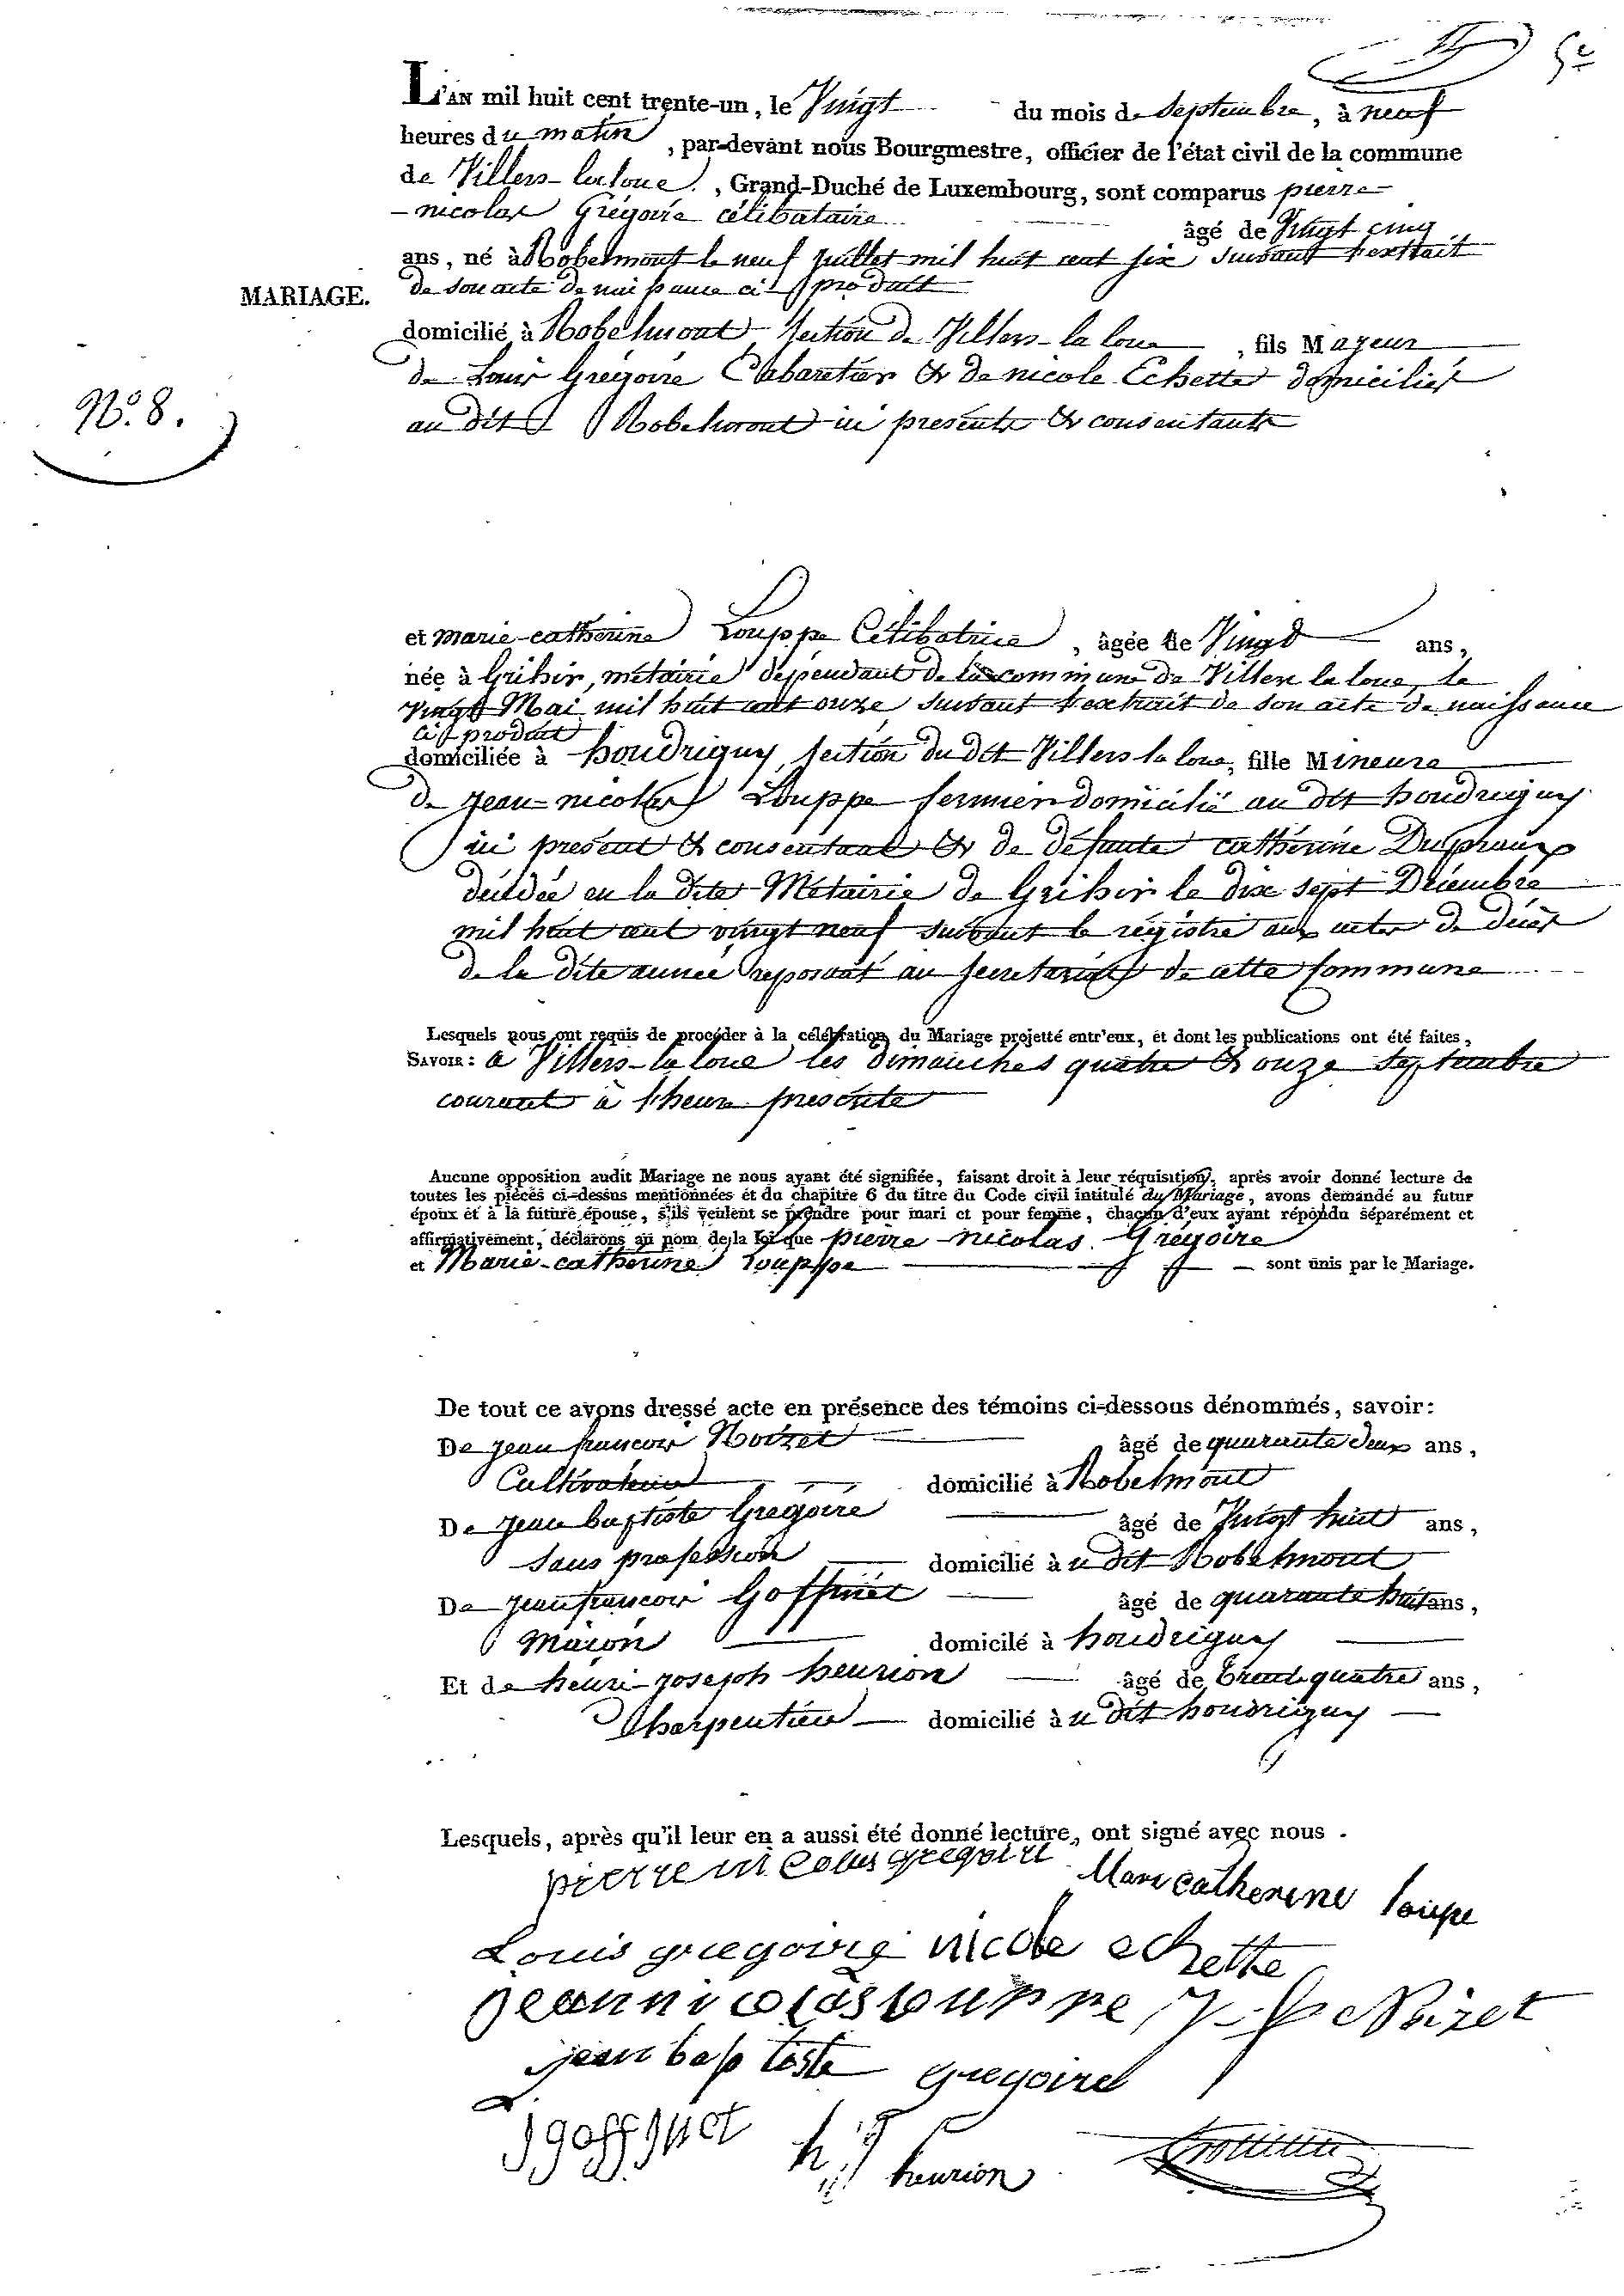 5e
L'AN mil huit cent trente-un, le Vingt du mois de Septembre, à neuf
heures du matin, par-devant nous Bourgmestre, officier de l'état civil de la commune
de Villers-la loue, Grand-Duché de Luxembourg, sont comparus pierre
-nicolas Grégoire célibataire âgé de Vingt cinq
ans, né à Robelmont le neuf juillet mil huit cent six suivant l'extrait
MARIAGE. de son acte de naissance ci produit
domicilié à Robelmont Section de Villers-la loue, fils Majeur
de Louis Grégoire Cabaretier & de nicole Echette domiciliés
N.° 8.
au dit Robelmont ici présents & consentants
et marie-catherine Louppe Célibatrice, âgée de Vingt ans,
née à Grihir, métairie dépendant de la commune de Villers la loue, le
vingt Mai mil huit cent onze suivant l'extrait de son acte de naissance
ci produit
domiciliée à houdrigny, Section du dit Villers la loue, fille Mineure
de jean-nicolas Louppe fermier domicilié au dit houdrigny
ici présent & consentant & de défunte catherine Dupraux
décédée en la dite Métairie de Grihir le dix sept Décembre
mil huit cent vingt neuf suivant le régistre aux actes de décès
de la dite année reposant au secretariat de cette Commune
Lesquels nous ont requis de procéder à la célébration du Mariage projetté entr'eux, et dont les publications ont été faites,
SAVOIR : a Villers-la loue les dimanches quatre & onze Septembre
courant à l'heure présente
Aucune opposition audit Mariage ne nous ayant été signifiée, faisant droit à leur réquisition, après avoir donné lecture de
toutes les pièces ci-dessus mentionnées et du chapitre 6 du titre du Code civil intitulé du Mariage, avons demandé au futur
époux et à la future épouse, s'ils veulent se prendre pour mari et pour femme, chacun d'eux ayant répondu séparément et
affirmativement, déclarons au nom de la loi que pierre-nicolas Grégoire
et Marie-catherine Louppe sont unis par le Mariage.
De tout ce avons dressé acte en présence des témoins ci-dessous dénommés, savoir:
De jean françois Noizet âgé de quarante deux ans,
Cultivateur domicilié à Robelmont
De jean baptiste Grégoire âgé de Vingt huit ans,
sans profession domicilié à u dit Robelmont
De jean françois Goffinet âgé de quarante huit ans,
Maçon domicilé à houdrigny
Et de henri-joseph henrion âgé de trente quatre ans,
Charpentier domicilié à u dit houdrigny
Lesquels, après qu'il leur en a aussi été donné lecture, ont signé avec nous.
pierre nicolas gregoire Marie catherine loupe
Louis gregoire nicole echette
jean nicolas louppe J-F Noizet
jean baptiste gregoire
J goffinet h j henrion